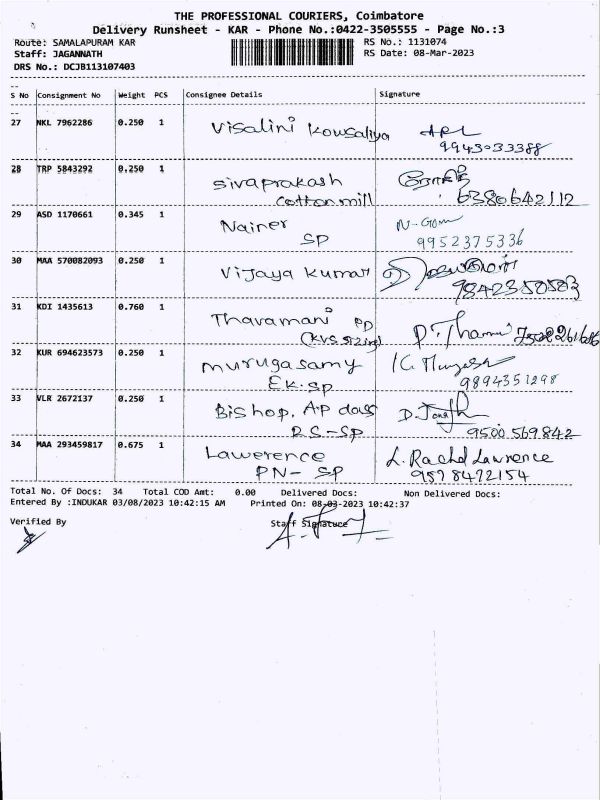 THE PROFESSIONAL COURIERS, Coimbatore
Delivery Runsheet - KAR - Phone No.:0422-3505555 - Page No.:3
Route: SAMALAPURAM KAR
RS No.: 1131074
Staff: JAGANNATH
RS Date: 08-Mar-2023
DRS No.: DCJB113107403
S No Consignment No Weight PCS Consignee Details Signature
27 NKL 7962286 0.250 1 Visalini Kowsaliya
9943033388
28 TRP 5843292 0.250 1 sivaprakash
cotton mill 6380642112
29 ASD 1170661 0.345 1 Nainer
SP 9952375336
30 MAA 570082093 0.250 1 Vijaya kumar
9842350583
31 KDI 1435613 0.760 1 Thavamani PP
(KVS sizing)
32 KUR 694623573 0.250 1 murugasamy
EK.SP 9894351298
33 VLR 2672137 0.250 1 Bishop, A.P dass
RS-SP 9500 569842
34 MAA 293459817 0.675 1 Lawerence L. Rachel Lawrence
PN- SP 9578472154
Total No. Of Docs: 34 Total COD Amt: 0.00 Delivered Docs: Non Delivered Docs:
Entered By :INDUKAR 03/08/2023 10:42:15 AM Printed On: 08-03-2023 10:42:37
Verified By Staff Signature